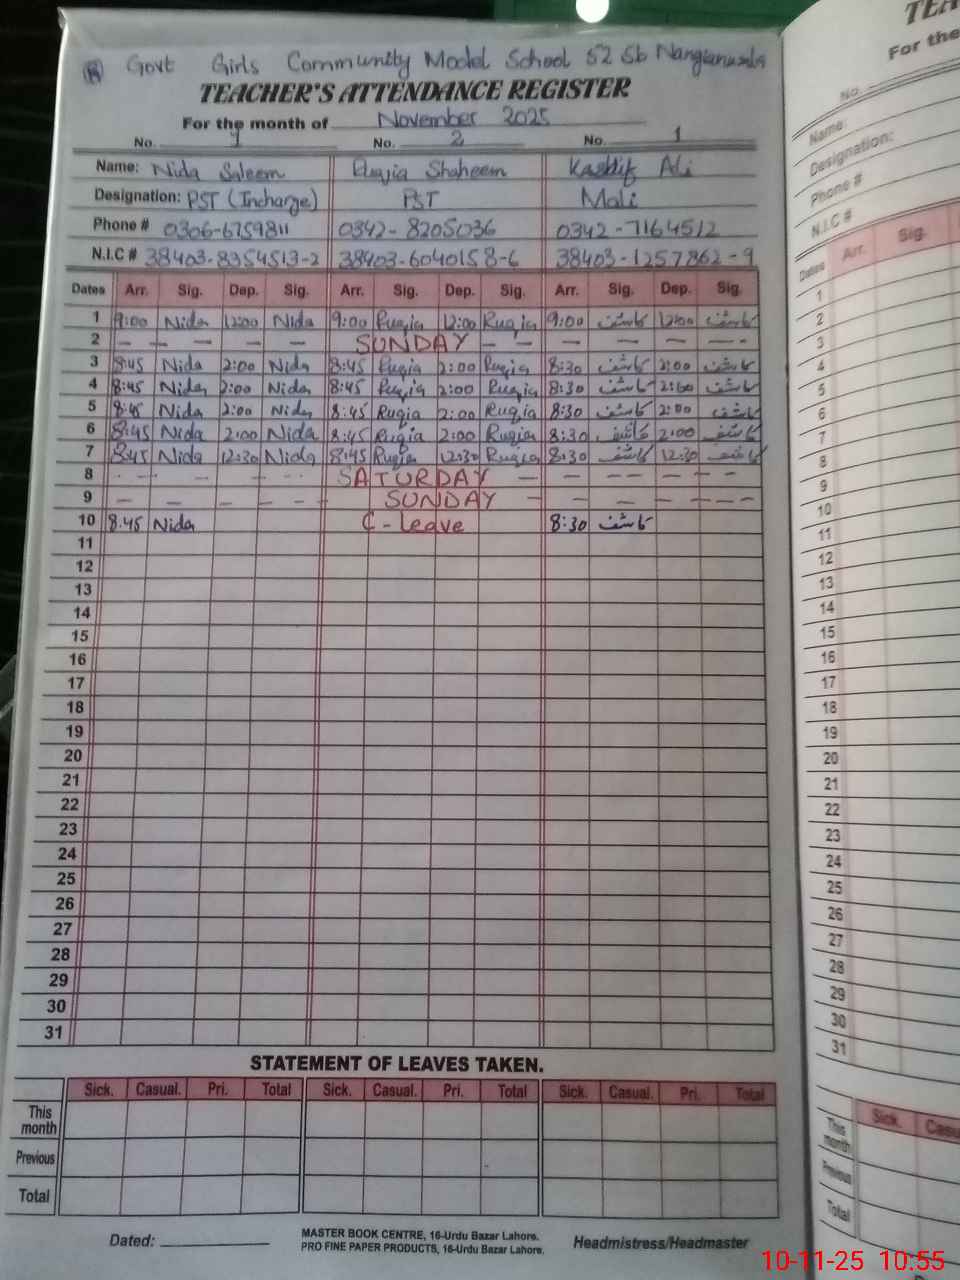 Govt Girls Community Model School 52 Sb Nangianwala
TEACHER'S ATTENDANCE REGISTER
For the month of November 2025
No. 1 No. 2 No. 1
Name: Nida Saleem Ruqia Shaheen Kashif Ali
Designation: PST (Incharge) PST Mali
Phone # 0306-6759811 0342-8205036 0342-7164512
N.I.C # 38403-8354513-2 38403-6040158-6 38403-1257862-9
Dates Arr. Sig. Dep. Sig. Arr. Sig. Dep. Sig. Arr. Sig. Dep. Sig.
1 9:00 Nida 12:00 Nida 9:00 Ruqia 12:00 Ruqia 9:00 کاشف 12:00 کاشف
2 — — — — SUNDAY — — — — — —
3 8:45 Nida 2:00 Nida 8:45 Ruqia 2:00 Ruqia 8:30 کاشف 2:00 کاشف
4 8:45 Nida 2:00 Nida 8:45 Ruqia 2:00 Ruqia 8:30 کاشف 2:00 کاشف
5 8:45 Nida 2:00 Nida 8:45 Ruqia 2:00 Ruqia 8:30 کاشف 2:00 کاشف
6 8:45 Nida 2:00 Nida 8:45 Ruqia 2:00 Ruqia 8:30 کاشف 2:00 کاشف
7 8:45 Nida 12:30 Nida 8:45 Ruqia 12:30 Ruqia 8:30 کاشف 12:30 کاشف
8 SATURDAY — — — — —
9 — — — — SUNDAY — — — — —
10 8:45 Nida C-Leave 8:30 کاشف
11
12
13
14
15
16
17
18
19
20
21
22
23
24
25
26
27
28
29
30
31
STATEMENT OF LEAVES TAKEN.
Sick. Casual. Pri. Total Sick. Casual. Pri. Total Sick. Casual. Pri. Total
This month
Previous
Total
Dated: MASTER BOOK CENTRE, 16-Urdu Bazar Lahore.
PRO FINE PAPER PRODUCTS, 16-Urdu Bazar Lahore.
Headmistress/Headmaster
For the
No.
Name:
Designation:
Phone #
N.I.C #
Dates Arr. Sig.
1
2
3
4
5
6
7
8
9
10
11
12
13
14
15
16
17
18
19
20
21
22
23
24
25
26
27
28
29
30
31
Sick.
This month
Previous
Total
10-11-25 10:55